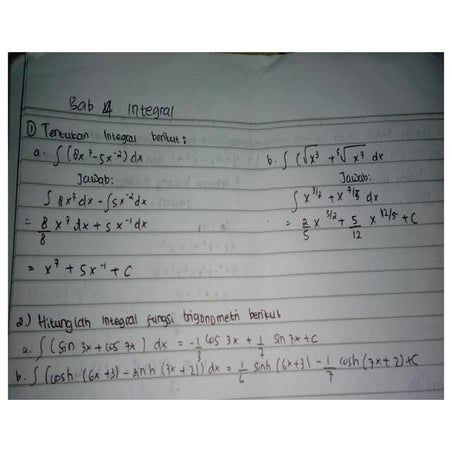 Bab 4 Integral
① Tentukan Integral berikut:
a. ∫(8x⁷-5x⁻²) dx
Jawab:
∫ 8x⁷dx - ∫5x⁻²dx
= 8/8 x⁷ dx + 5x⁻¹dx
= x⁷ + 5x⁻¹ + C
b. ∫ (√x³ + ⁵√x⁷ dx
Jawab:
∫ x^3/2 + x^7/5 dx
= 2/5 x^5/2 + 5/12 x^12/5 + C
2.) Hitunglah integral fungsi trigonometri berikut
a. ∫ (sin 3x + cos 7x) dx = -1/3 cos 3x + 1/7 sin 7x + C
b. ∫ (cosh (6x+3) - sinh (7x+2)) dx = 1/6 sinh (6x+3) - 1/7 cosh (7x+2) + C